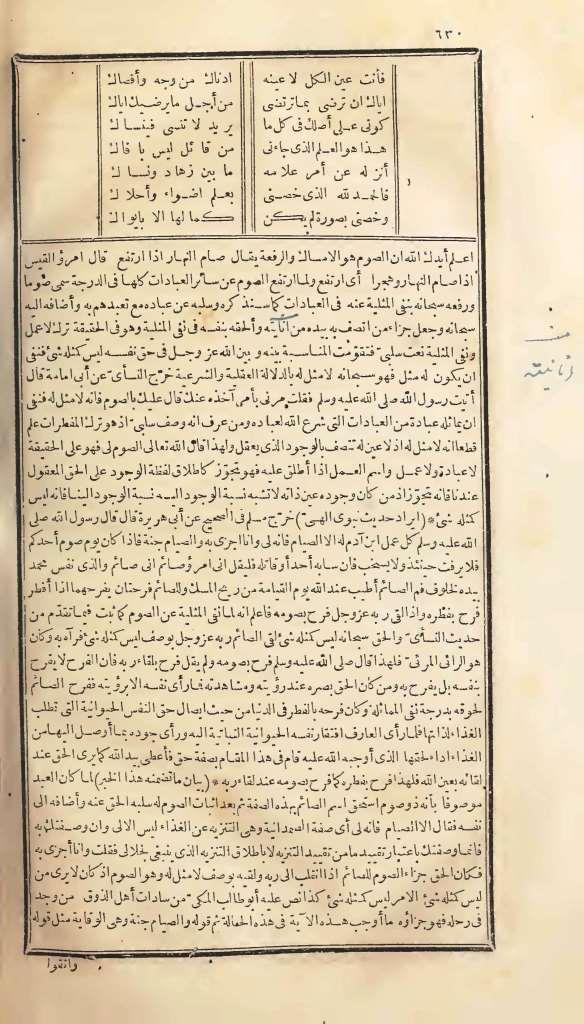 ٦٣٠
فأنت عين الكل لا عينه ادناك من وجه وأقصاك
اياك ان ترضى بما ترتضى من أجل ما يرضيك اياك
كونى على أصلك فى كل ما يريد لا تنسى فينساك
هذا هو العلم الذى جاءنى من قائل ليس بافاك
أنزله عن أمر علامه ما بين زهاد ونساك
فالحمد لله الذى خصنى بعلم اضواء وأحلاك
وخصنى بصورة لم يكن كمالها الا بايواك
اعلم أيدك الله ان الصوم هو الامساك والرفعة يقال صام النهار اذا ارتفع قال امرؤ القيس
اذا صام النهار وهجرا أى ارتفع ولما ارتفع الصوم عن سائر العبادات كلها فى الدرجة سمى صوما
ورفعه سبحانه بنفى المثلية عنه فى العبادات كما سنذكره وسلبه عن عباده مع تعبدهم به وأضافه اليه
سبحانه وجعل جزاء من اتصف به بيده من أنايته وألحقه بنفسه فى نفى المثلية وهو فى الحقيقة ترك لا عمل
ونفى المثلية نعت سلبى فتقوّت المناسبة بينه وبين الله عز وجل فى حق نفسه ليس كمثله شئ فنفى
ان يكون له مثل فهو سبحانه لا مثل له بالدلالة العقلية والشرعية خرّج النسائى عن أبى امامة قال
أتيت رسول الله صلى الله عليه وسلم فقلت مرنى بأمر آخذه عنك قال عليك بالصوم فانه لا مثل له فنفى
ان يماثله عبادة من العبادات التى شرع الله لعباده ومن عرف انه وصف سلبى اذ هو ترك المفطرات علم
قطعا انه لا مثل له اذ لا عين له تتصف بالوجود الذى يعقل ولهذا قال الله تعالى الصوم لى فهو على الحقيقة
لا عبادة ولا عمل واسم العمل اذا أطلق عليه فهو تجوّز كاطلاق لفظة الوجود على الحق المعقول
عندنا فانه تجوّز اذ من كان وجوده عين ذاته لا تشبه نسبة الوجود اليه نسبة الوجود الينا فانه ليس
كمثله شئ * (ايراد حديث نبوى الهى) * خرّج مسلم فى الصحيح عن أبى هريرة قال قال رسول الله صلى
الله عليه وسلم كل عمل ابن آدم له الا الصيام فانه لى وانا اجزى به والصيام جنة فاذا كان يوم صوم أحدكم
فلا يرفث حينئذ ولا يسخب فان سابه أحد أو قاتله فليقل انى امرؤ صائم انى صائم والذى نفس محمد
بيده لخلوف فم الصائم أطيب عند الله يوم القيامة من ريح المسك وللصائم فرحتان يفرحهما اذا أفطر
فرح بفطره واذا لقى ربه عز وجل فرح بصومه فاعلم انه لما نفى المثلية عن الصوم كما ثبت فيما تقدّم من
حديث النسائى والحق سبحانه ليس كمثله شئ لقى الصائم ربه عز وجل بوصف ليس كمثله شئ فرآه به وكان
هو الرائى المرئى فلهذا قال صلى الله عليه وسلم فرح بصومه ولم يقل فرح بلقاء ربه فان الفرح لا يفرح
بنفسه بل يفرح به ومن كان الحق بصره عند رؤيته ومشاهدته فما رأى نفسه الا برؤيته ففرح الصائم
لحوقه بدرجة نفى المماثلة وكان فرحه بالفطر فى الدنيا من حيث ايصال حق النفس الحيوانية التى تطلب
الغذاء لذاتها فلما رأى العارف افتقار نفسه الحيوانية النباتية اليه ورأى جوده بما أوصل اليها من
الغذاء اداء لحقها الذى أوجبه الله عليه قام فى هذا المقام بصفة حق فأعطى بيد الله كما يرى الحق عند
لقائه بعين الله فلهذا فرح بفطره كما فرح بصومه عند لقاء ربه * (بيان ما تضمنه هذا الخبر) لما كان العبد
موصوفا بأنه ذو صوم استحق اسم الصائم بهذه الصفة ثم بعد اثبات الصوم له سلبه الحق عنه وأضافه الى
نفسه فقال الا الصيام فانه لى أى صفة الصمدانية وهى التنزيه عن الغذاء ليس الا لى وان وصفتك به
فانما وصفتك باعتبار تقييد ما من تقييد التنزيه لا باطلاق التنزيه الذى ينبغى لجلالى فقلت وانا أجزى به
فكان الحق جزاء الصوم للصائم اذا انقلب الى ربه ولقيه بوصف لا مثل له وهو الصوم اذ كان لا يرى من
ليس كمثله شئ الا من ليس كمثله شئ كذا نص عليه أبو طالب المكى من سادات أهل الذوق من وجد
فى رحله فهو جزاؤه ما أوجب هذه الآية فى هذه الحالة ثم قوله والصيام جنة وهى الوقاية مثل قوله
واتقوا